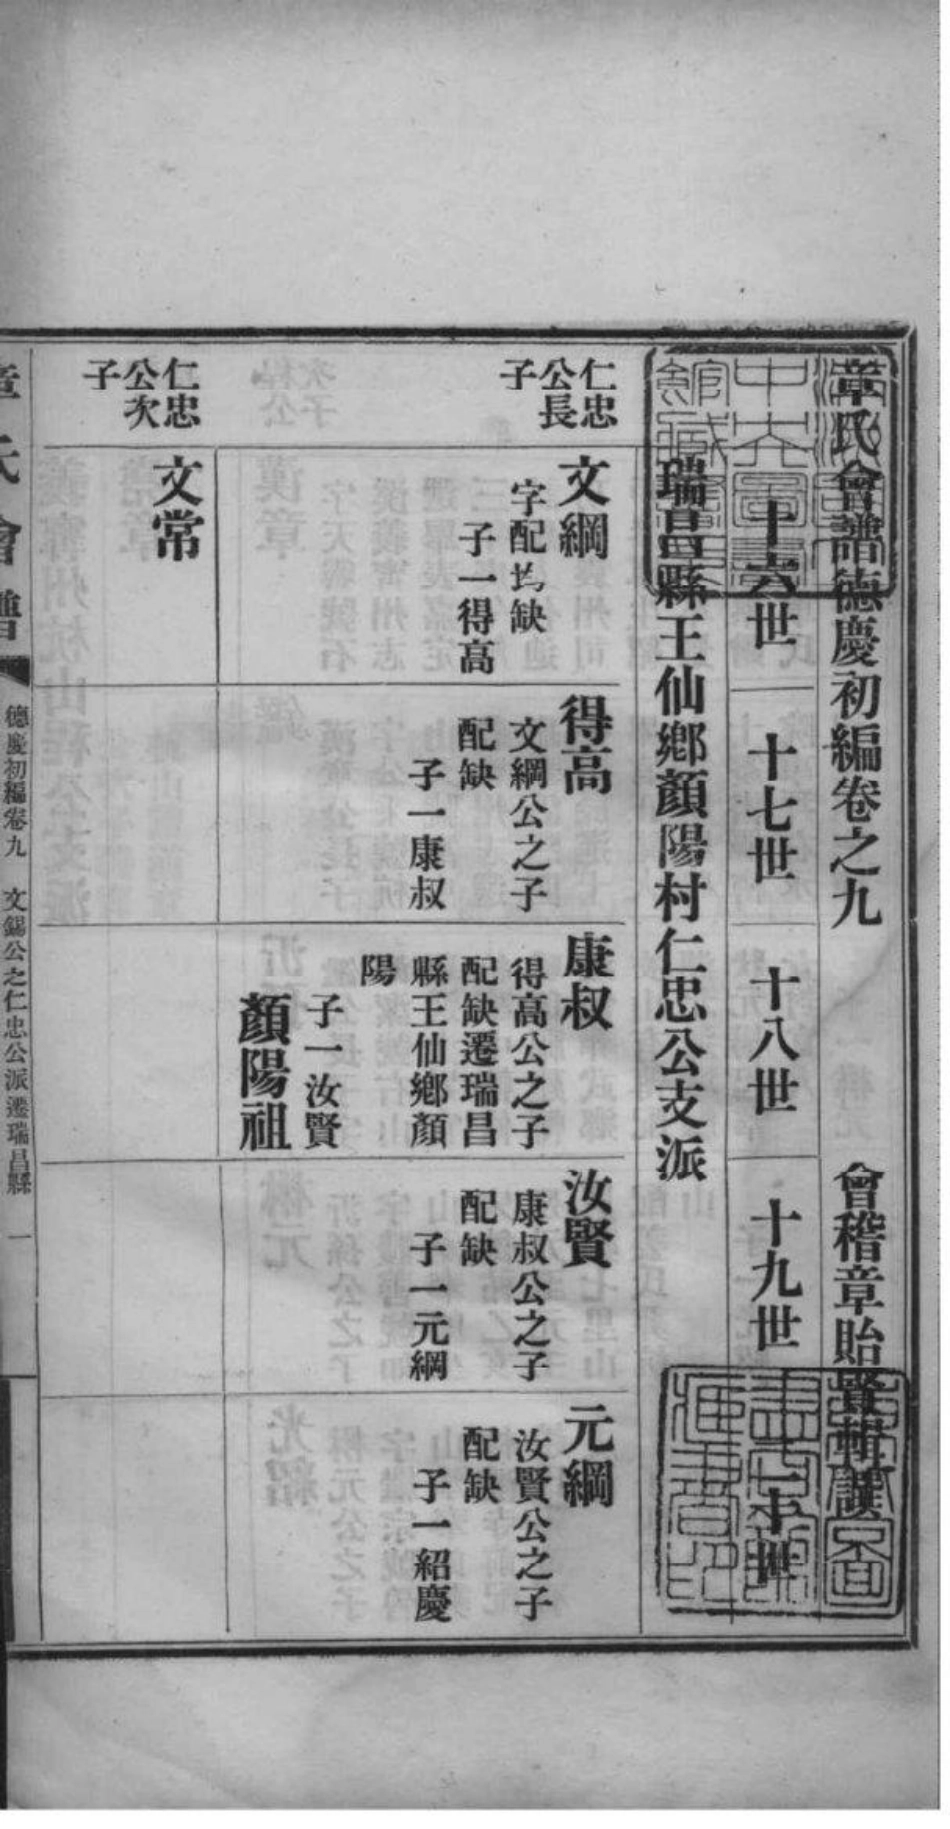 章氏會譜德慶初編卷之九
會稽章貽賢輯譔
十六世
十七世
十八世
十九世
二十世
瑞昌縣王仙鄉顏陽村仁忠公支派
仁忠
公長
子
文綱
字配均缺
子一得高
得高
文綱公之子
配缺
子一康叔
康叔
得高公之子
配缺遷瑞昌
縣王仙鄉顏
陽
子一汝賢
顏陽祖
汝賢
康叔公之子
配缺
子一元綱
元綱
汝賢公之子
配缺
子一紹慶
仁忠
公次
子
文常
章氏會譜
德慶初編卷九
文錫公之仁忠公派遷瑞昌縣
一